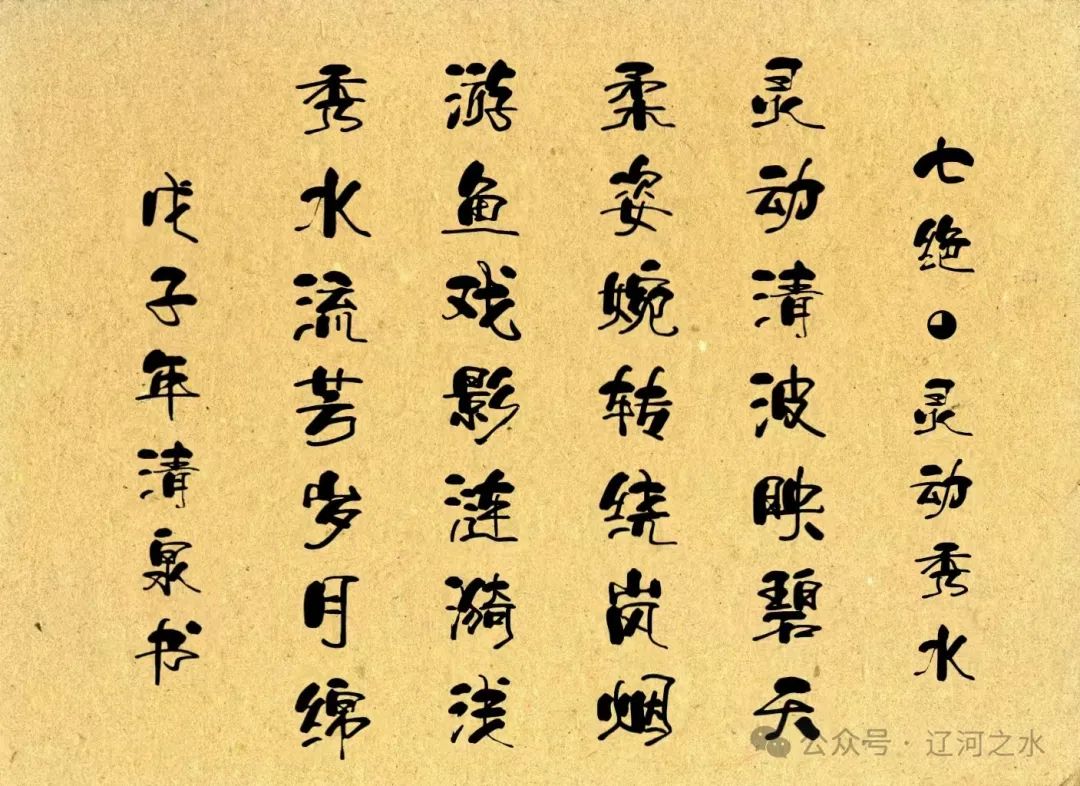 七绝·灵动秀水
灵动清波映碧天
柔姿婉转绕岚烟
游鱼戏影涟漪浅
秀水流芳岁月绵
戊子年清泉书
公众号·辽河之水